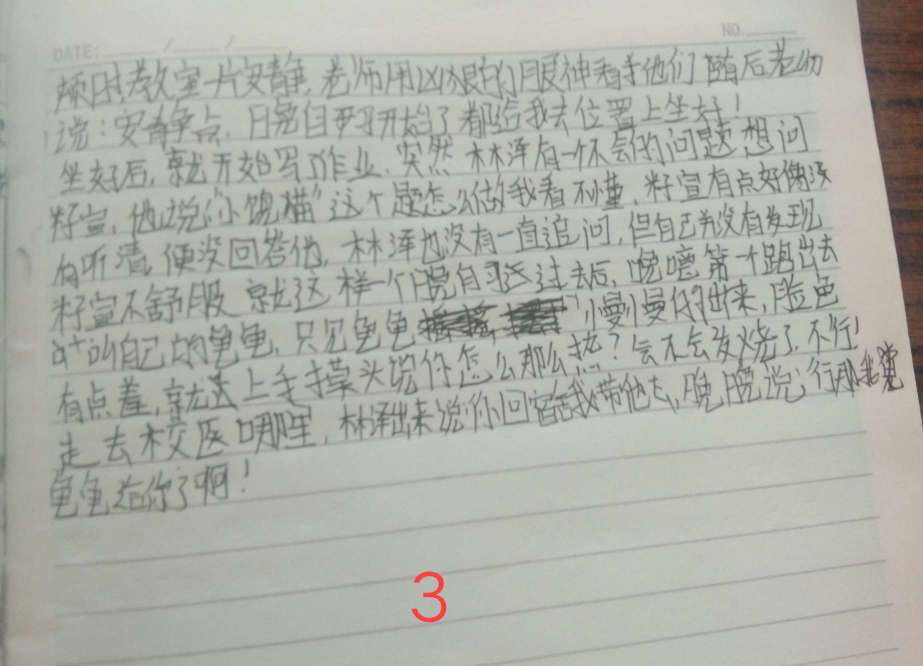 DATE: / / NO.
顿时教室一片安静,老师用凶狠的眼神看着他们随后老师
说:安静点,日晚自习开始了都给我去位置上坐好!
坐好后,就开始写作业,突然林泽有一个不会的问题想问
籽宣,他说"小馋猫"这个题怎么做的我看不懂,籽宣有点好像没
有听清,便没回答他,林泽也没有一直追问,但自己并没有发现
籽宣不舒服 就这样一个晚自习过去后,晚晚第一个跑出去
叫自己的龟龟,只见龟龟慢慢的出来,脸色
有点羞,就送上手摸头说你怎么那么热?会不会发烧了,不行!
走去校医哪里,林泽出来说你回宿舍我带他去,晚晚说:行那我
龟龟给你了啊!
3